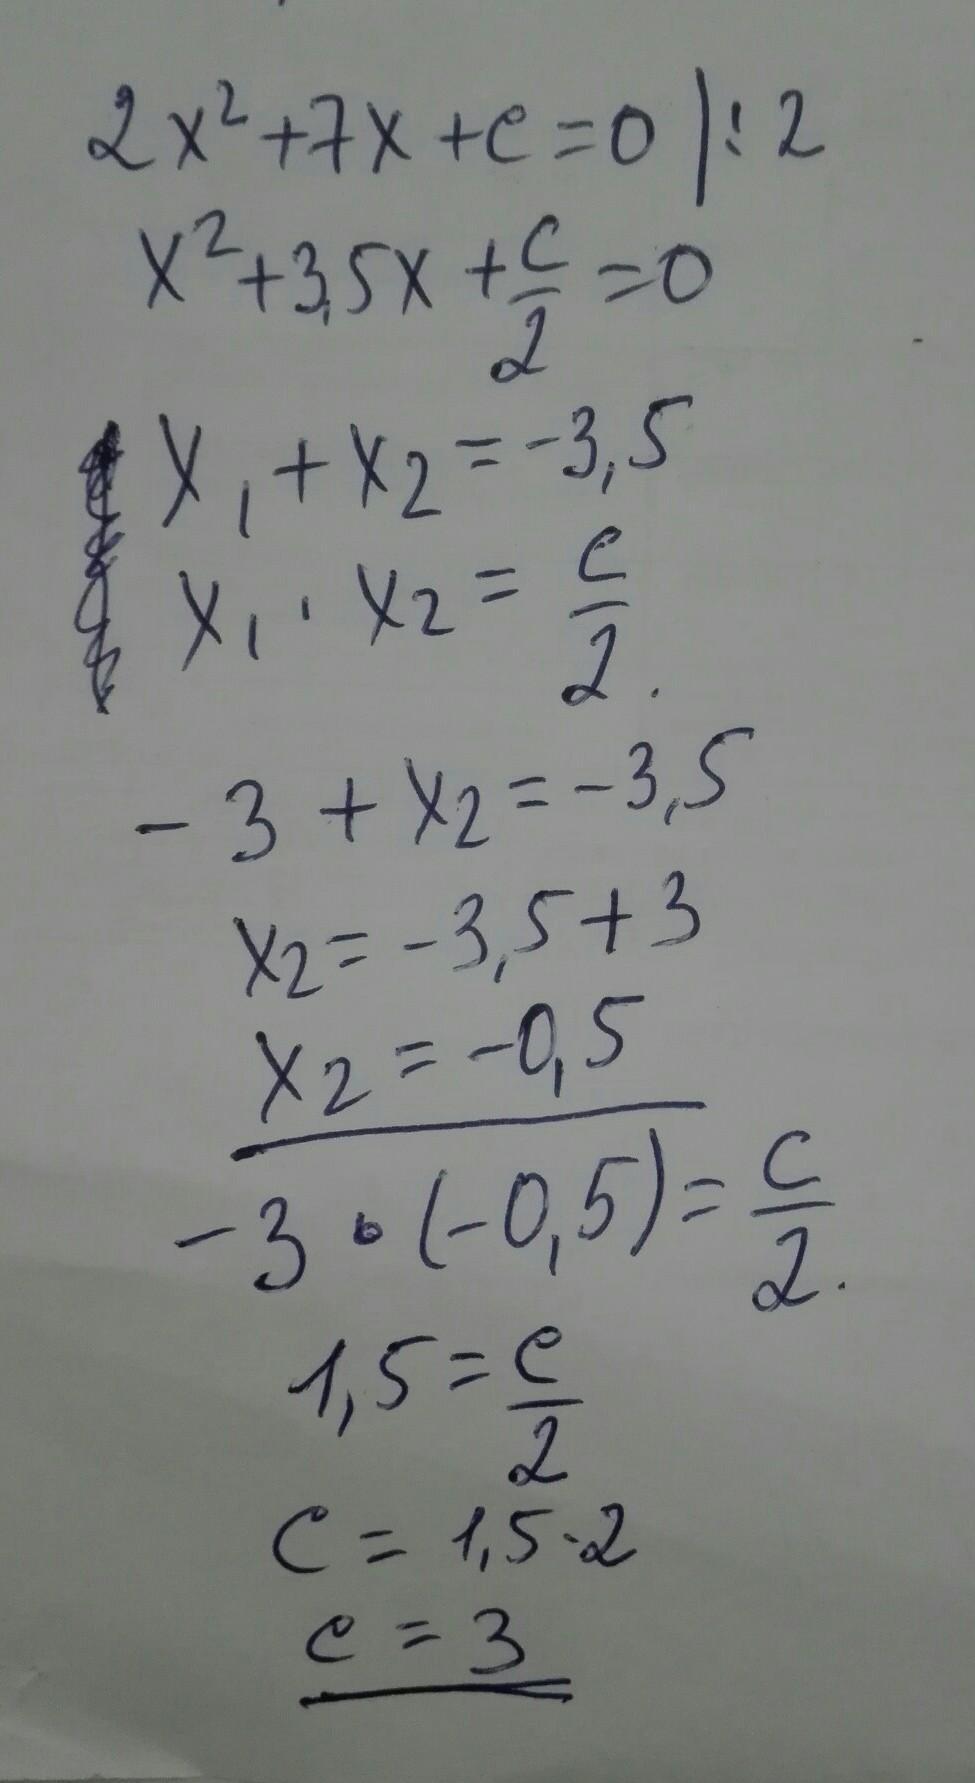 2x² + 7x + c = 0 | : 2
x² + 3,5x + c/2 = 0
x₁ + x₂ = -3,5
x₁ · x₂ = c/2.
-3 + x₂ = -3,5
x₂ = -3,5 + 3
x₂ = -0,5
-3 · (-0,5) = c/2.
1,5 = c/2
c = 1,5 · 2
c = 3